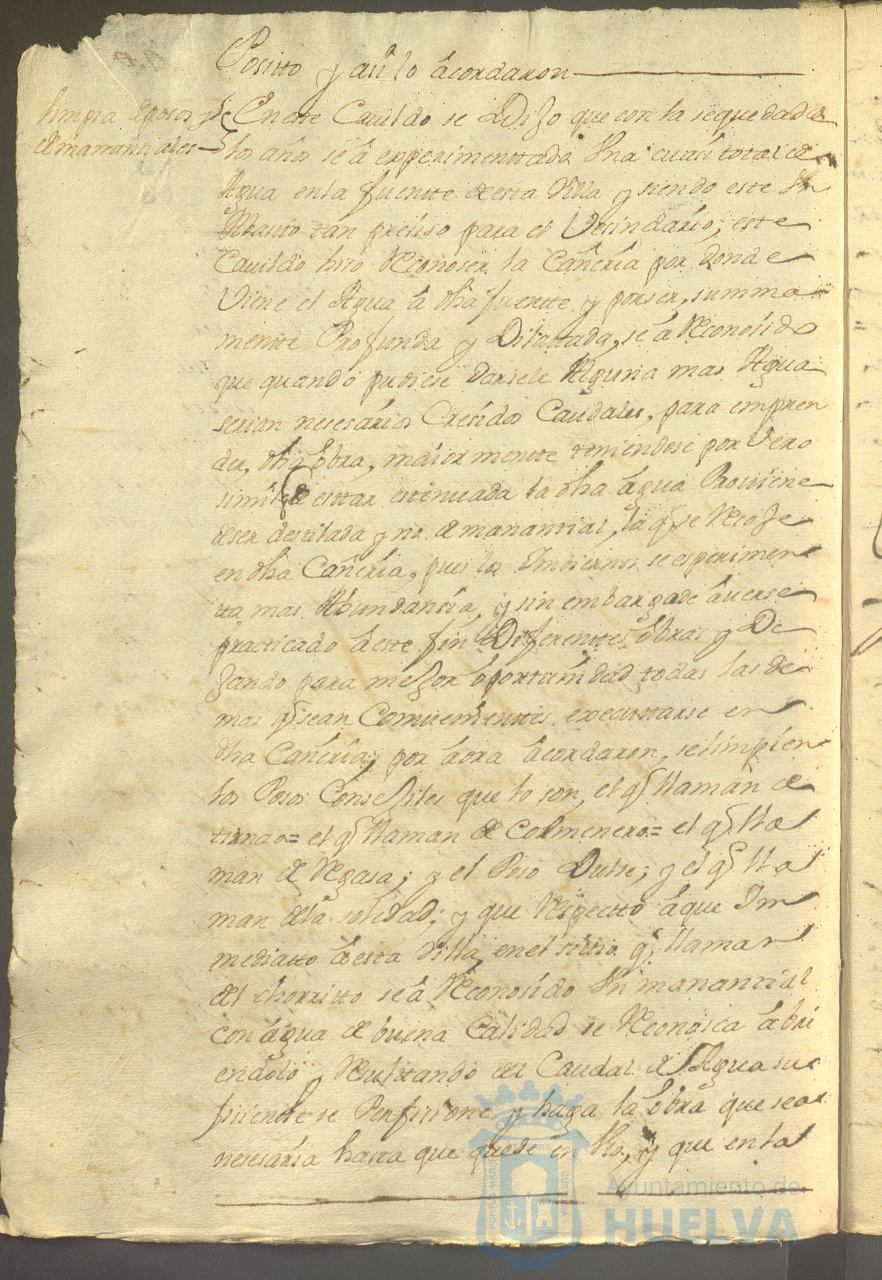 Positto y asi lo acordaron
limpia de posos y
de manantiales
En este Cavildo se Dijo que con la sequedad de
los años se â experimenttado Una cuasi total de
Agua en la fuentte de esta Villa y siendo este
tan presiso para el Vesindario, este
Cavildo hiso Reconoser la Cañeria por donde
Viene el Agua â dha fuentte y por ser summa
mente Profunda y Dilattada, se â Reconosido
que quando pudiese darsele Alguna mas Agua
serian nesesarios Cresidos Caudales, para empren
der dha obra, maiormentte teniendose por Vero
simil estar la dha agua Proviene
de ser destilada y no de manantial, la q.e se Recoje
en dha Cañeria, pues los Imbiernos se esperimen
tta mas Abundansia, y sin embargo de averse
practicado â este fin Diferenttes obras y De
jando para mejor oportunidad todas las de
mas q.e sean Combenienttes executtarse en
dha Cañeria; por aora acordaron, se limpien
los Posos Consejiles que lo son, el q.e llaman de
= el q.e llaman de Colmenero= el q.e lla
man de Vegasa; y el Poso Dulse; y el q.e lla
man de la soledad; y que Respectto â que In
mediatto â esta Villa, en el sittio q.e llaman
del chorritto se â Reconosido Un manantial
con agua de buena Calidad se Reconosca abri
endolo y Resulttando del Caudal de Agua su
fisiente se Perfisione y haga la obra que sea
nesesaria hasta que quede en y que en las
Ayuntamiento de
HUELVA